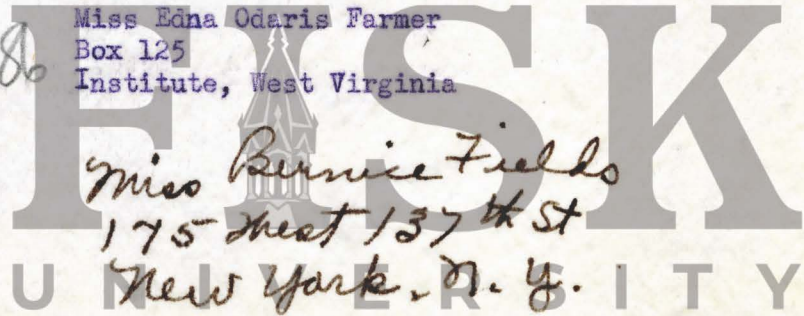 Miss Edna Odaris Farmer
86
Box 125
Institute, West Virginia
Miss Bernice Fields
175 West 137th St
New York, N. Y.
FISK
UNIVERSITY